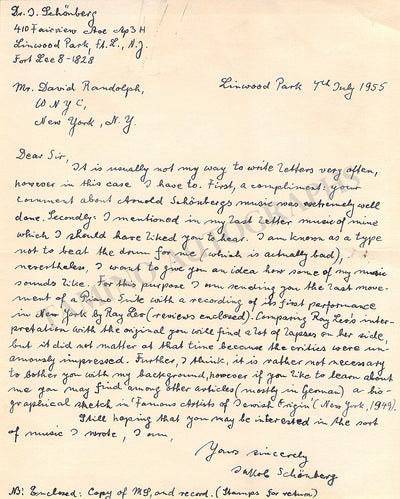 Dr. J. Schönberg
410 Fairview Ave Ap 3 H
Linwood Park, Ft. L., N.J.
Fort Lee 8-1828
Linwood Park 7th July 1955
Mr. David Randolph,
W N Y C,
New York, N.Y.
Dear Sir,
It is usually not my way to write letters very often,
however in this case I have to. First, a compliment: your
comment about Arnold Schönberg's music was extremely well
done. Secondly: I mentioned in my last letter music of mine
which I should have liked you to hear. I am known as a type
not to beat the drum for me (which is actually bad),
nevertheless, I want to give you an idea how some of my music
sounds like. For this purpose I am sending you the last move-
ment of a Piano Suite with a recording of its first performance
in New York by Ray Lev (reviews enclosed). Comparing Ray Lev's inter-
pretation with the original you will find a lot of lapses on her side,
but it did not matter at that time because the critics were un-
amously impressed. Further, I think, it is rather not necessary
to bother you with my background, however if you like to learn about
me you may find among other articles (mostly in German) a bio-
graphical sketch in 'Famous Artists of Jewish Origin' (New York, 1949).
Still hoping that you may be interested in the sort
of music I wrote, I am,
Yours sincerely
Jakob Schönberg
NB: Enclosed: Copy of MS, and record. (Stamps for return)